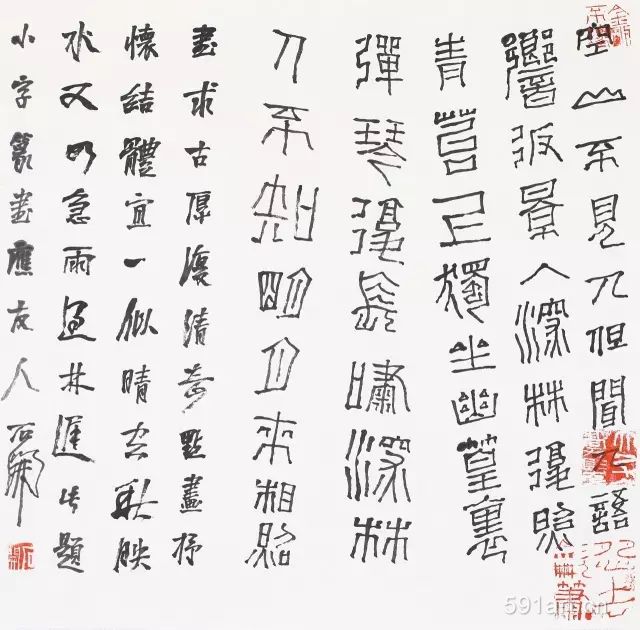 空山不見人但聞人語
響返景入深林復照
青苔上獨坐幽篁裏
彈琴復長嘯深林
人不知明月來相照
書求古厚復清點畫抒
懷結體宜一似晴空映
水又如急雨過林題
小字篆書應友人石開